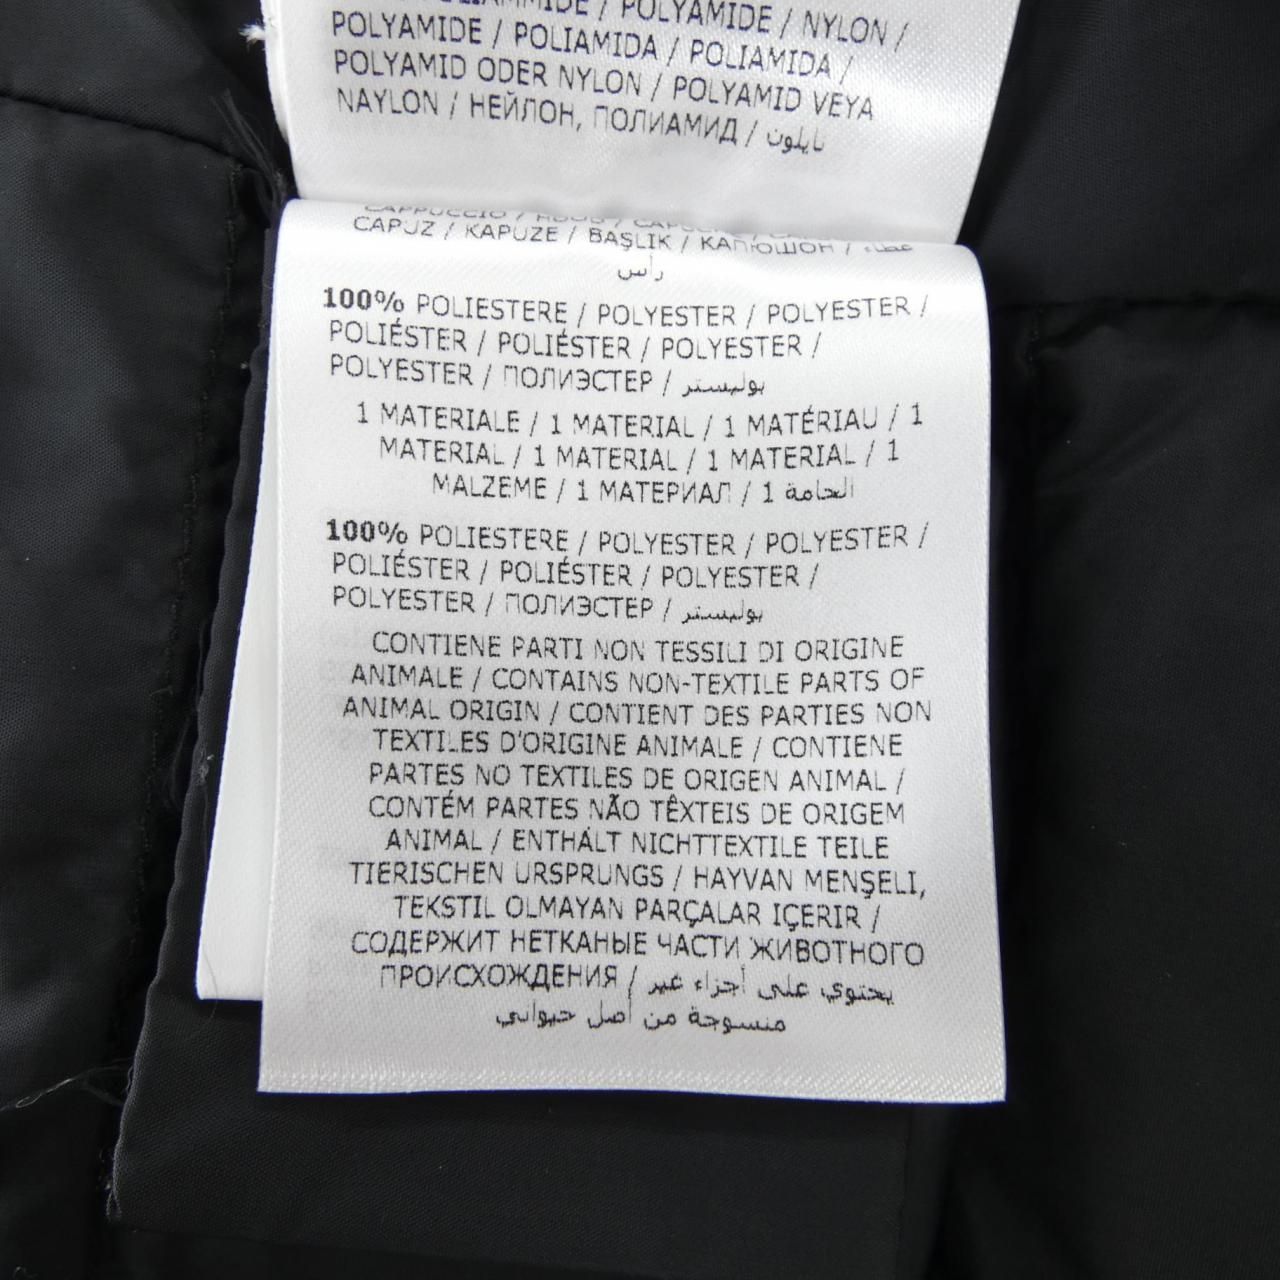 POLYAMIDE / NYLON /
POLYAMIDE / POLIAMIDA / POLIAMIDA /
POLYAMID ODER NYLON / POLYAMID VEYA
NAYLON / НЕЙЛОН, ПОЛИАМИД / نايلون
CAPUZ / KAPUZE / BAŞLIK / КАПЮШОН / غطاء
رأس
100% POLIESTERE / POLYESTER / POLYESTER /
POLIÉSTER / POLIÉSTER / POLYESTER /
POLYESTER / ПОЛИЭСТЕР / بوليستر
1 MATERIALE / 1 MATERIAL / 1 MATÉRIAU / 1
MATERIAL / 1 MATERIAL / 1 MATERIAL / 1
MALZEME / 1 МАТЕРИАЛ / 1 الخامة
100% POLIESTERE / POLYESTER / POLYESTER /
POLIÉSTER / POLIÉSTER / POLYESTER /
POLYESTER / ПОЛИЭСТЕР / بوليستر
CONTIENE PARTI NON TESSILI DI ORIGINE
ANIMALE / CONTAINS NON-TEXTILE PARTS OF
ANIMAL ORIGIN / CONTIENT DES PARTIES NON
TEXTILES D'ORIGINE ANIMALE / CONTIENE
PARTES NO TEXTILES DE ORIGEN ANIMAL /
CONTÉM PARTES NÃO TÊXTEIS DE ORIGEM
ANIMAL / ENTHÄLT NICHTTEXTILE TEILE
TIERISCHEN URSPRUNGS / HAYVAN MENŞELI,
TEKSTIL OLMAYAN PARÇALAR IÇERIR /
СОДЕРЖИТ НЕТКАНЫЕ ЧАСТИ ЖИВОТНОГО
ПРОИСХОЖДЕНИЯ / يحتوي على أجزاء غير
منسوجة من أصل حيواني